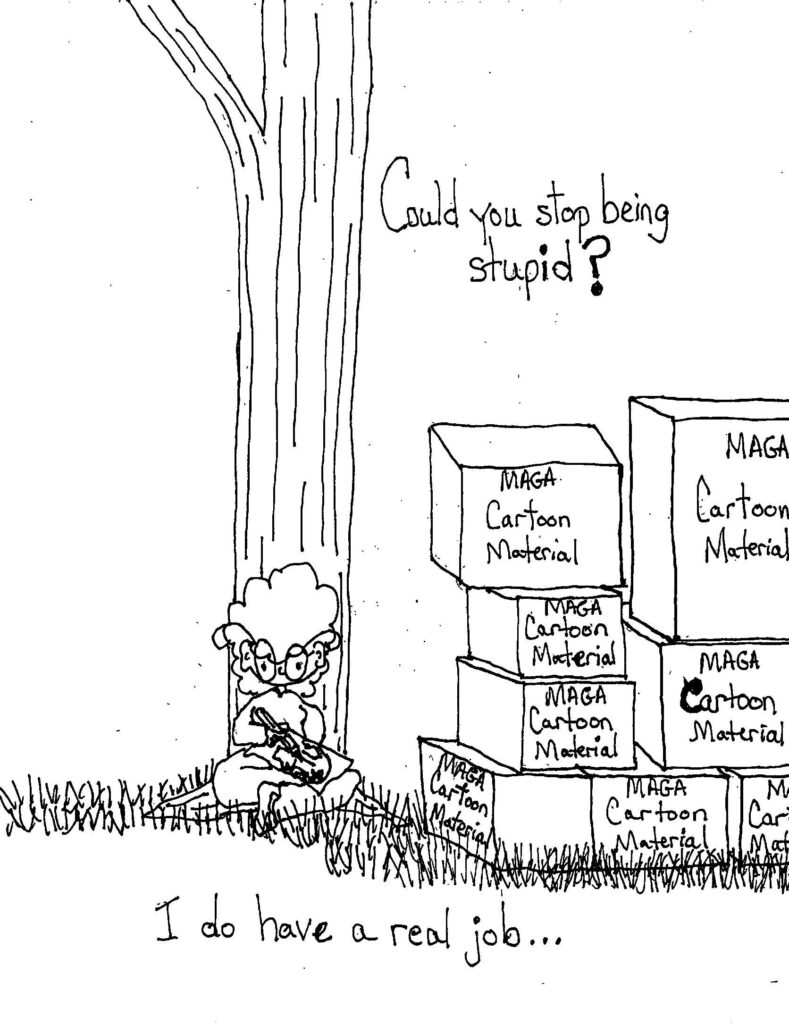 Could you stop being
stupid?
MAGA
Cartoon
Material
MAGA
Cartoon
Material
MAGA
Cartoon
Material
MAGA
Cartoon
Material
MAGA
Cartoon
Material
MAGA
Cartoon
Material
MAGA
Cartoon
Material
M
Car
Mat
I do have a real job...